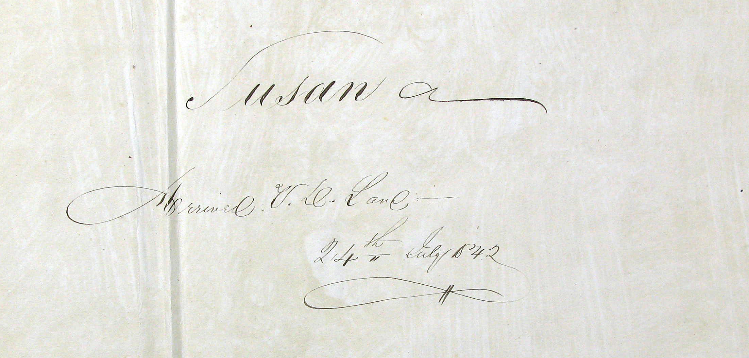 Susan a
Arrived V. D. Land
24th July 1842